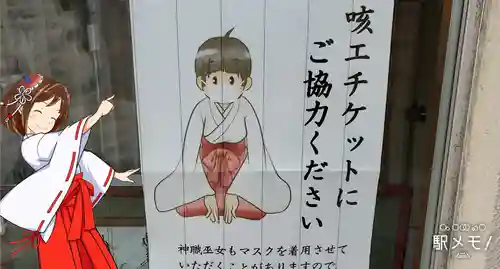 咳エチケットに
ご協力ください
神職巫女もマスクを着用させて
いただくことがありますので
駅メモ!